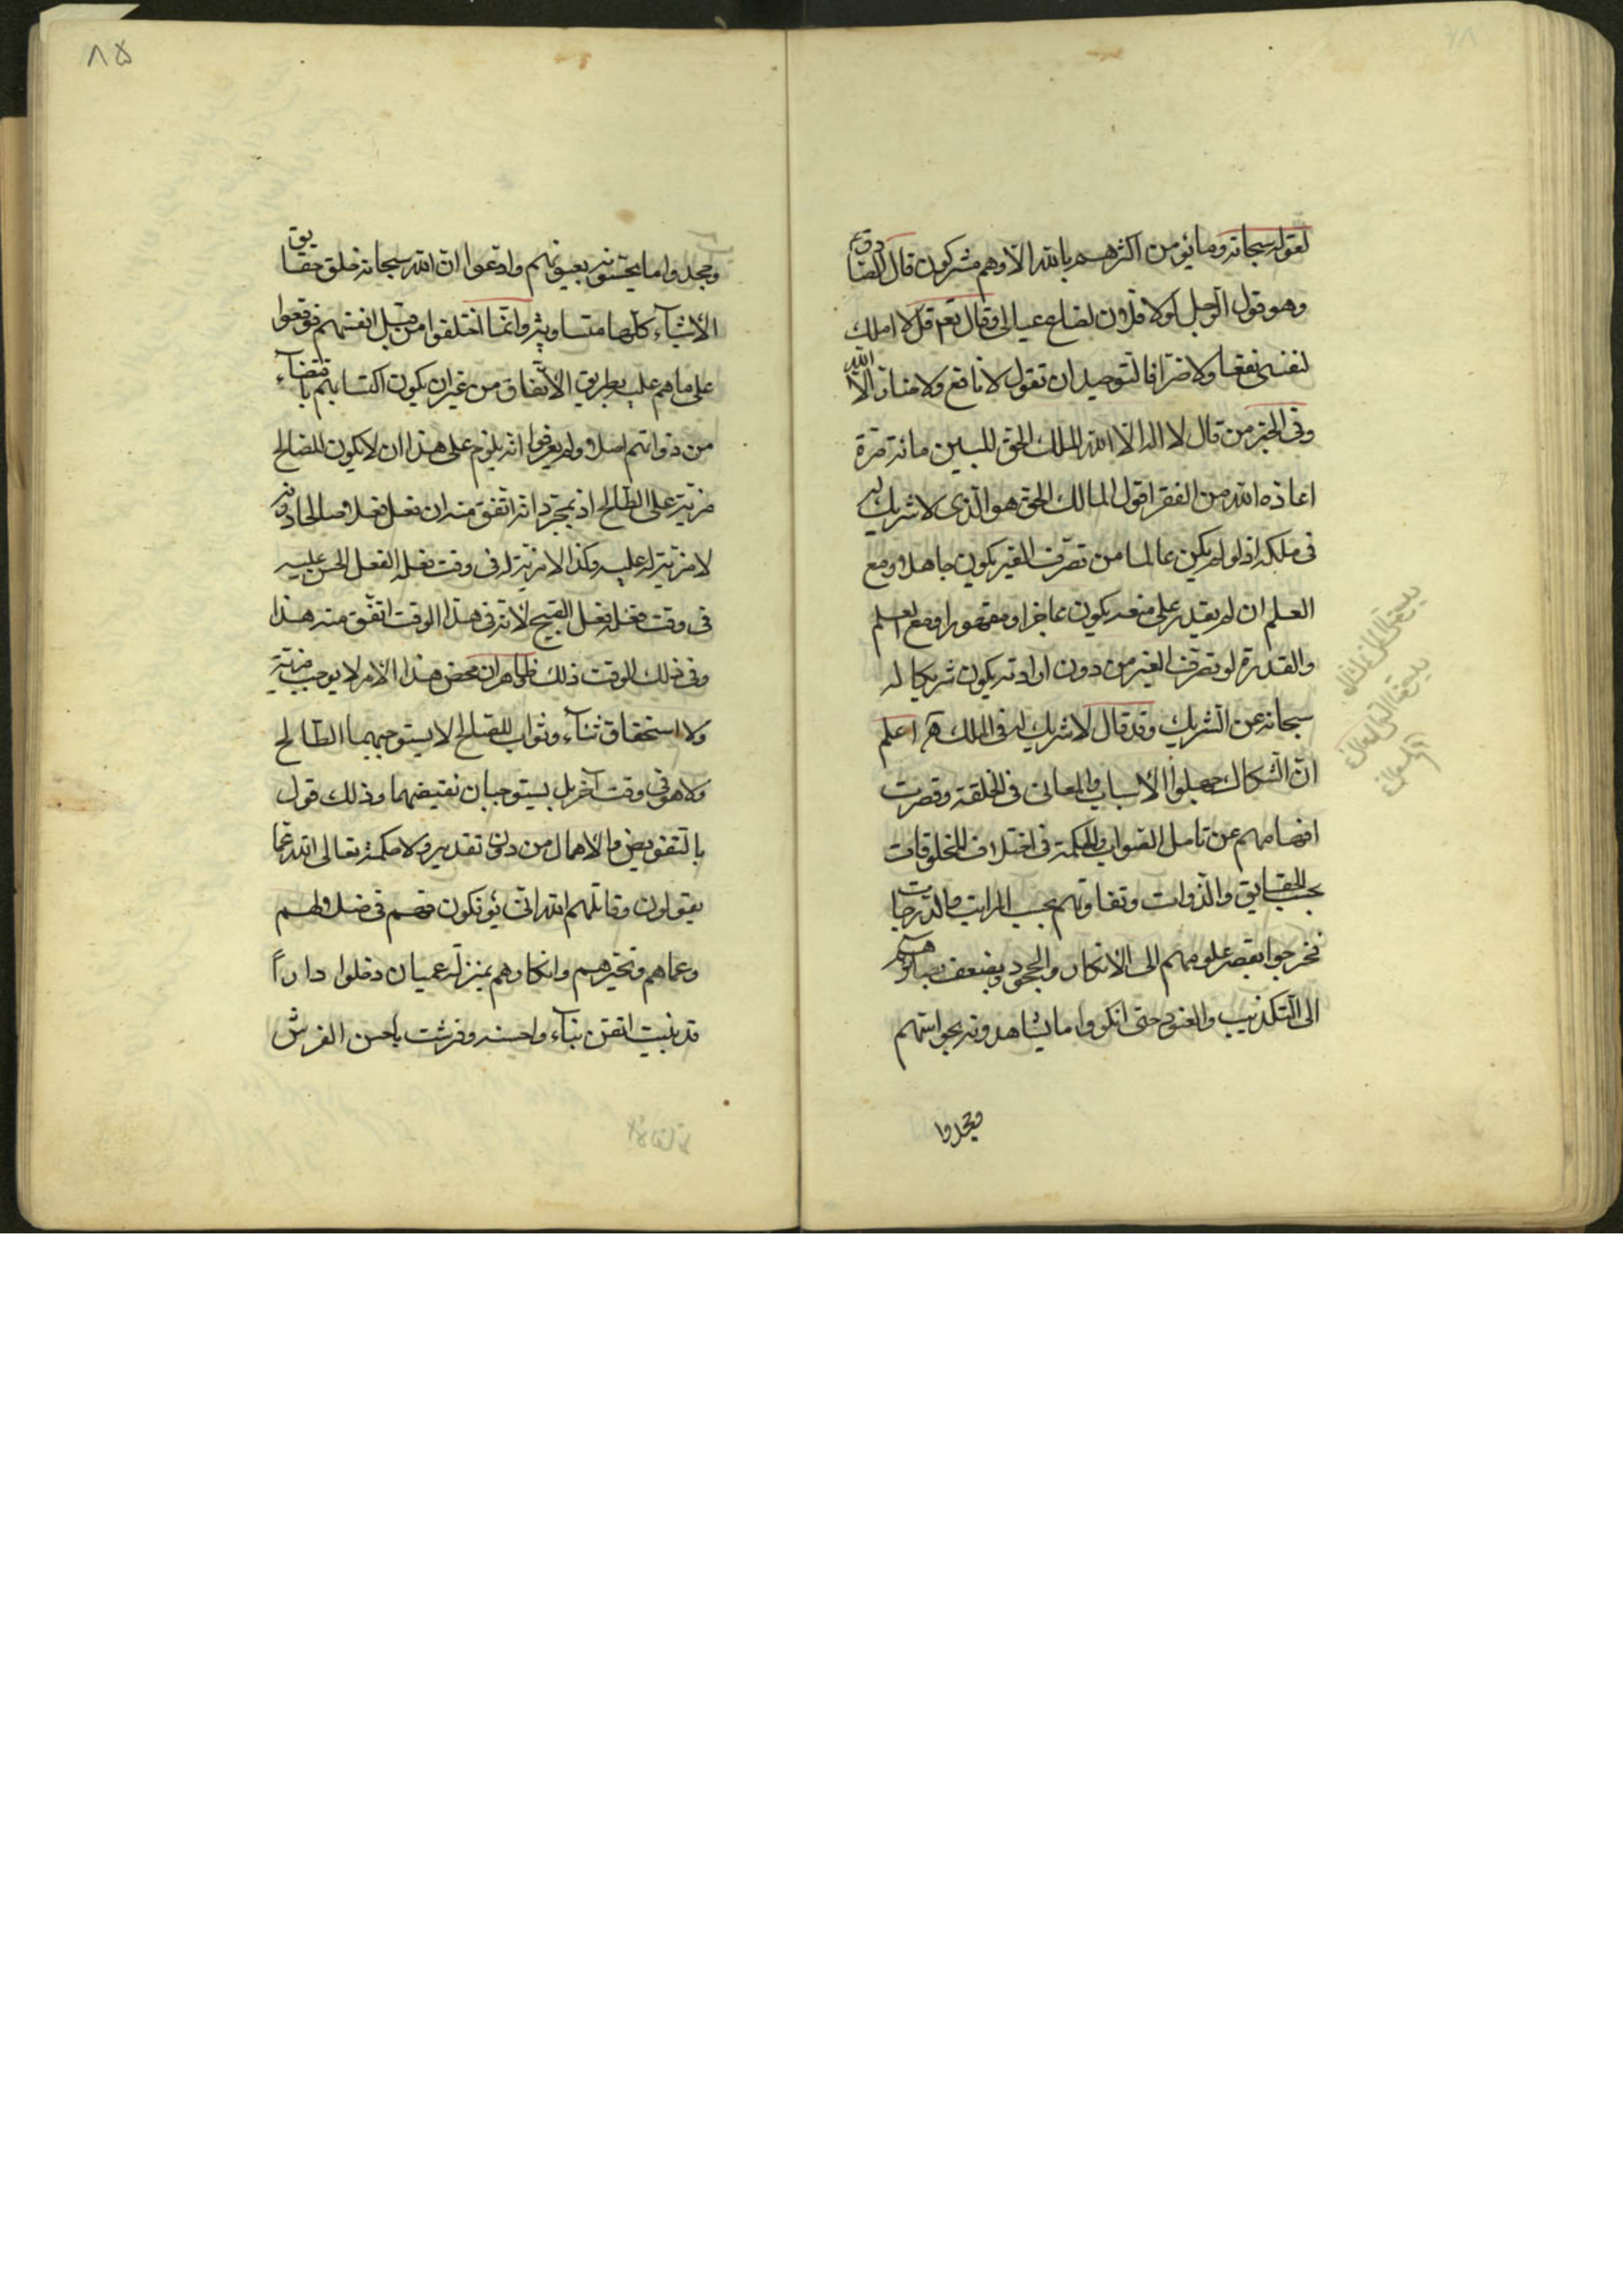 لقوله سبحانه وما يؤمن اكثرهم بالله الا وهم مشركون قال الصادق ع
وهو قول الرجل لولا فلان لضاع عيالى وقال تعم قل لا املك
لنفسى نفعا ولا ضرا فالتوحيد ان تقول لا نافع ولا ضار الا الله
وفى الخبر من قال لا اله الا الله الملك الحق المبين مائة مرة
اعاذه الله من الفقر اقول المالك الحق هو الذى لا شريك له
فى ملكه اذ لو لم يكن عالما من تصرف الغير يكون جاهلا ومع
العلم ان لم يقدر على منعه يكون عاجزا ومقهورا ومع العلم
والقدرة لو تصرف الغير من دون ارادته يكون شريكا له
سبحانه عن الشريك وقد قال لا شريك له فى الملك اعلم
ان الشكاك جهلوا الاسباب والمعانى فى الخلقة وقصرت
افهامهم عن تامل الصواب والحكمة فى اختلاف المخلوقات
بحسب الحقايق والذوات وتفاوتهم بحسب المراتب والدرجات
فخرجوا بقصر علومهم الى الانكار والجحود وبضعف بصائرهم
الى التكذيب والعنود حتى انكروا ما يشاهدونه بحواسهم
وجحدوا
۸۵
وجحدوا ما يحسونه بعيونهم وادعوا ان الله سبحانه خلق حقايق
الاشياء كلها متساوية وانما اختلفوا من قبل انفسهم فوقعوا
على ما هم عليه بطريق الاتفاق من غير ان يكون اكتسابهم باقتضاء
من ذواتهم اصلا ولم يعرفوا انه يلزم على هذا ان لا يكون للصالح
مزية على الطالح اذ بمجرد انه اتفق منه ان فعل فعلا صالحا دونه
لا مزية له عليه وكذا لا مزية له فى وقت فعله الفعل الحسن عليه
فى وقت فعله فعل القبيح لانه فى هذا الوقت اتفق منه هذا
وفى ذلك الوقت ذلك فظاهر ان محض هذا الامر لا يوجب مزية
ولا استحقاق ثناء وثواب للصالح لا يستوجبهما الطالح
ولا هو فى وقت آخر بل يستوجبان نقيضهما وذلك قول
بالتفويض والاهمال من دون تقدير ولا حكمة تعالى الله عما
يقولون وقاتلهم الله انى يؤفكون فهم فى ضلالهم
وعماهم وتحيرهم وانكارهم بمنزلة عميان دخلوا دارا
قد بنيت اتقن بناء واحسنه وفرشت باحسن الفرش